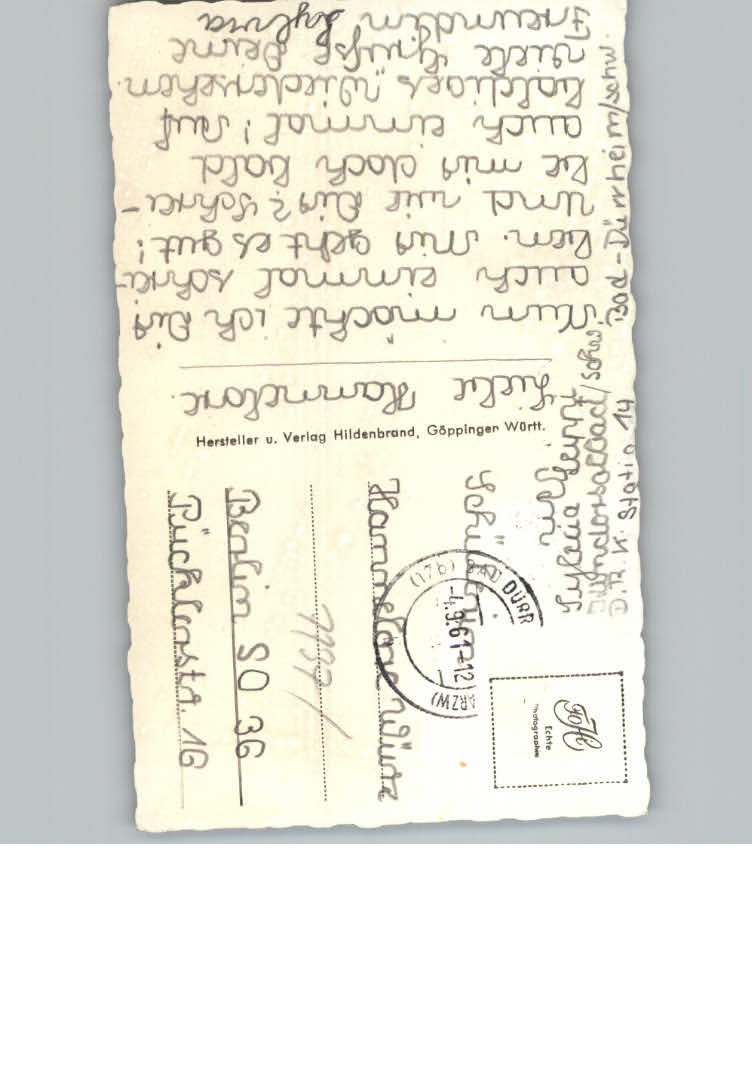 Liebe Hannelore.
Nun möchte ich Dir
auch einmal schrei-
ben. Mir geht es gut!
Und wie Dir? Schrei-
be mir doch bald
auch einmal! Auf
baldiges "Wiedersehen.
Viele Grüße Deine
Freundin Sylvia
Hersteller u. Verlag Hildenbrand, Göppingen Württ.
Sylvia
D.R.K. Statio 14 Bad-Dürrheim/schw.
(17b) BAD DÜRR
-4.9.61-12
ARZW)
Echte
Photographie
Schülerin
Hannelore Würz
1937/
Berlin SO 36
Pücklerstr. 16